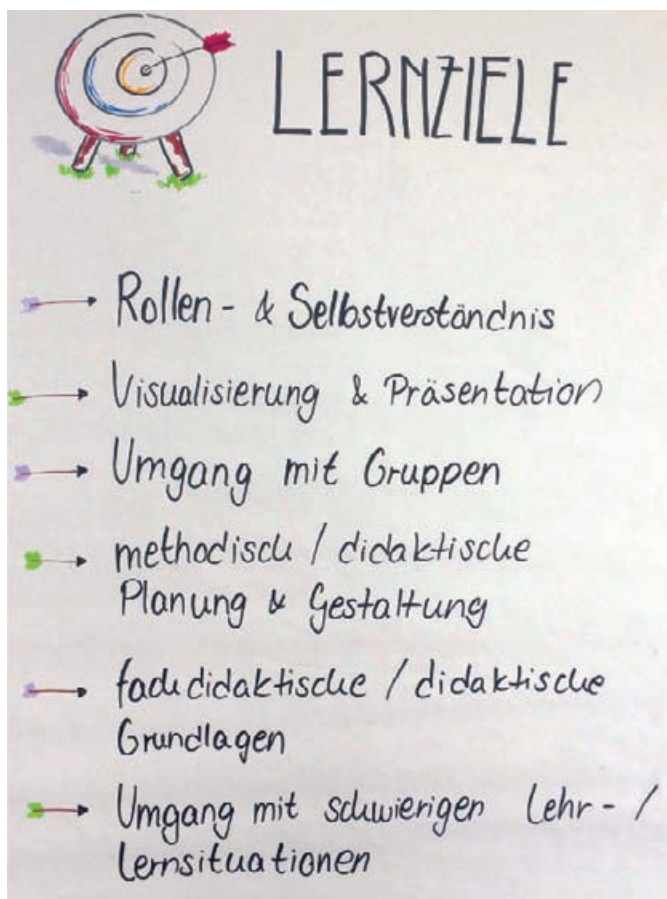 LERNZIELE
Rollen- & Selbstverständnis
Visualisierung & Präsentation
Umgang mit Gruppen
methodisch / didaktische
Planung & Gestaltung
fachdidaktische / didaktische
Grundlagen
Umgang mit schwierigen Lehr- /
Lernsituationen